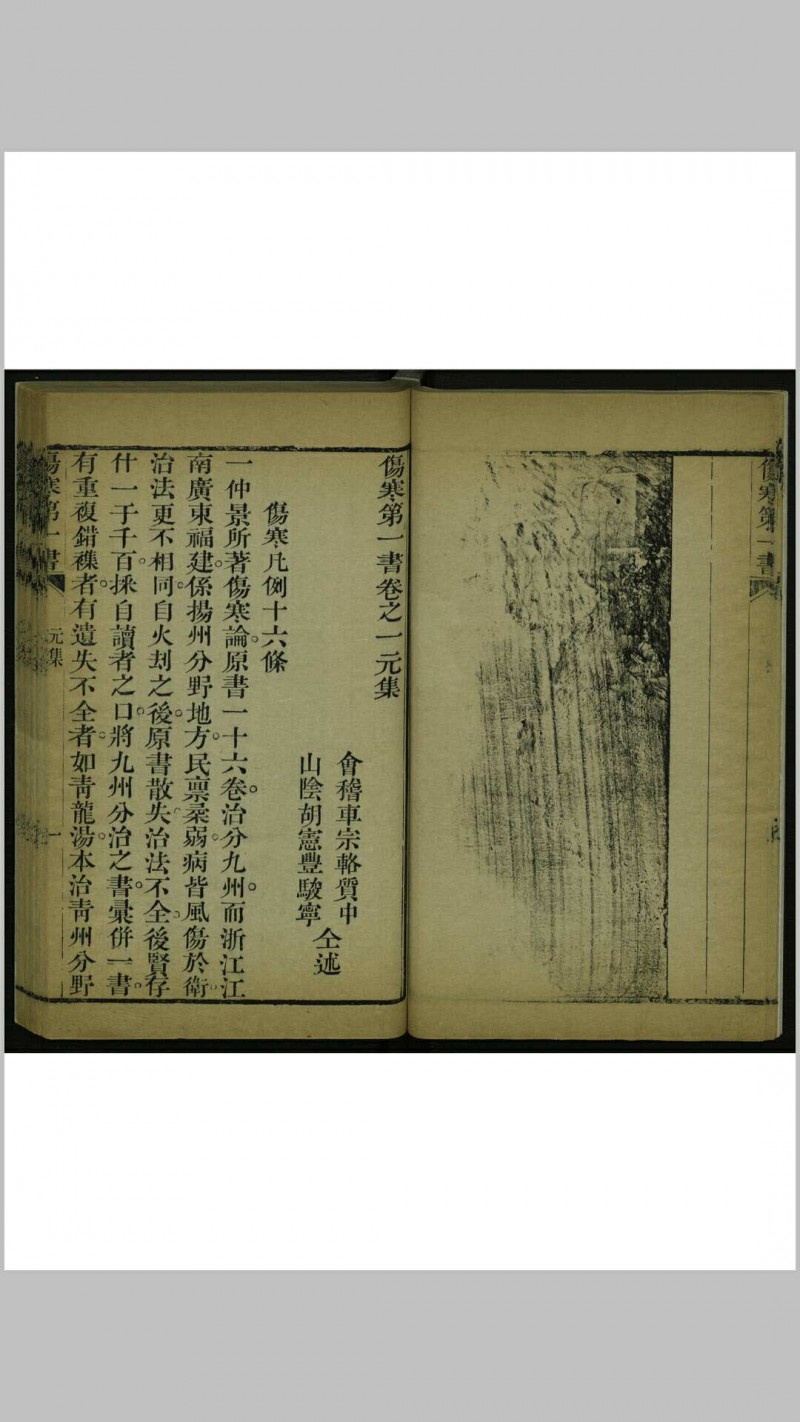 傷寒第一書
傷寒第一書卷之一元集
會稽車宗輅質中
山陰胡憲豐駿寧
仝述
傷寒凡例十六條
一仲景所著傷寒論。原書一十六卷。治分九州。而浙江江
南廣東福建。係揚州分野地方。民禀柔弱。病皆風傷於衛。
治法更不相同。自火刼之後。原書散失。治法不全。後賢存
什一于千百。採自讀者之口。將九州分治之書。彙併一書。
有重複錯襍者。有遺失不全者。如靑龍湯。本治靑州分野
傷寒第一書
元集
一